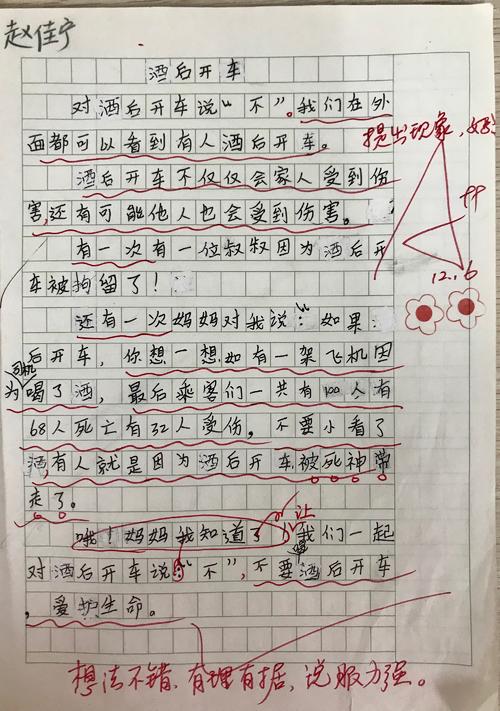 赵佳宁
酒后开车
对酒后开车说“不”。我们在外
面都可以看到有人酒后开车。
提出现象,好!
酒后开车不仅仅会家人受到伤
害,还有可能他人也会受到伤害。
有一次有一位叔叔因为酒后开
车被拘留了!
12.6
还有一次妈妈对我说:“如果
后开车,你想一想,如有一架飞机因
司机
为喝了酒,最后乘客们一共有100人有
68人死亡有32人受伤。不要小看了
酒,有人就是因为酒后开车被死神带
走了。
哦!妈妈我知道了
让
我们一起
对酒后开车说:“不”,不要酒后开车
,爱护生命。
想法不错,有理有据,说服力强。